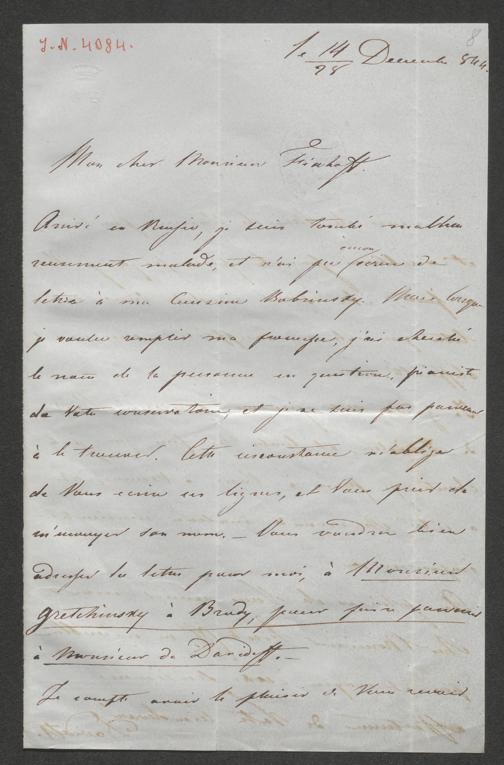 J.-N. 4084.
8
le 14/28 Decembre 844.
Mon cher Monsieur Fischoff.
Arrivé en Russie, je suis tombé malheu
reusement malade, et n'ai pu encore écrire de
lettre à ma Cousine Bobrinsky. Mais lorsque
je voulus remplir ma promesse, j'ai cherché
le nom de la personne en question, pianiste
de Votre conservatoire, et je ne suis pas parvenu
à le trouver. Cette circonstance m'oblige
de Vous écrire ces lignes, et Vous prier de
m'envoyer son nom. – Vous voudrez bien
adresser la lettre pour moi, à Monsieur
Gretchinsky à Brody, pour faire parvenir
à Monsieur de Davidoff. –
Je compte avoir le plaisir de Vous revoir